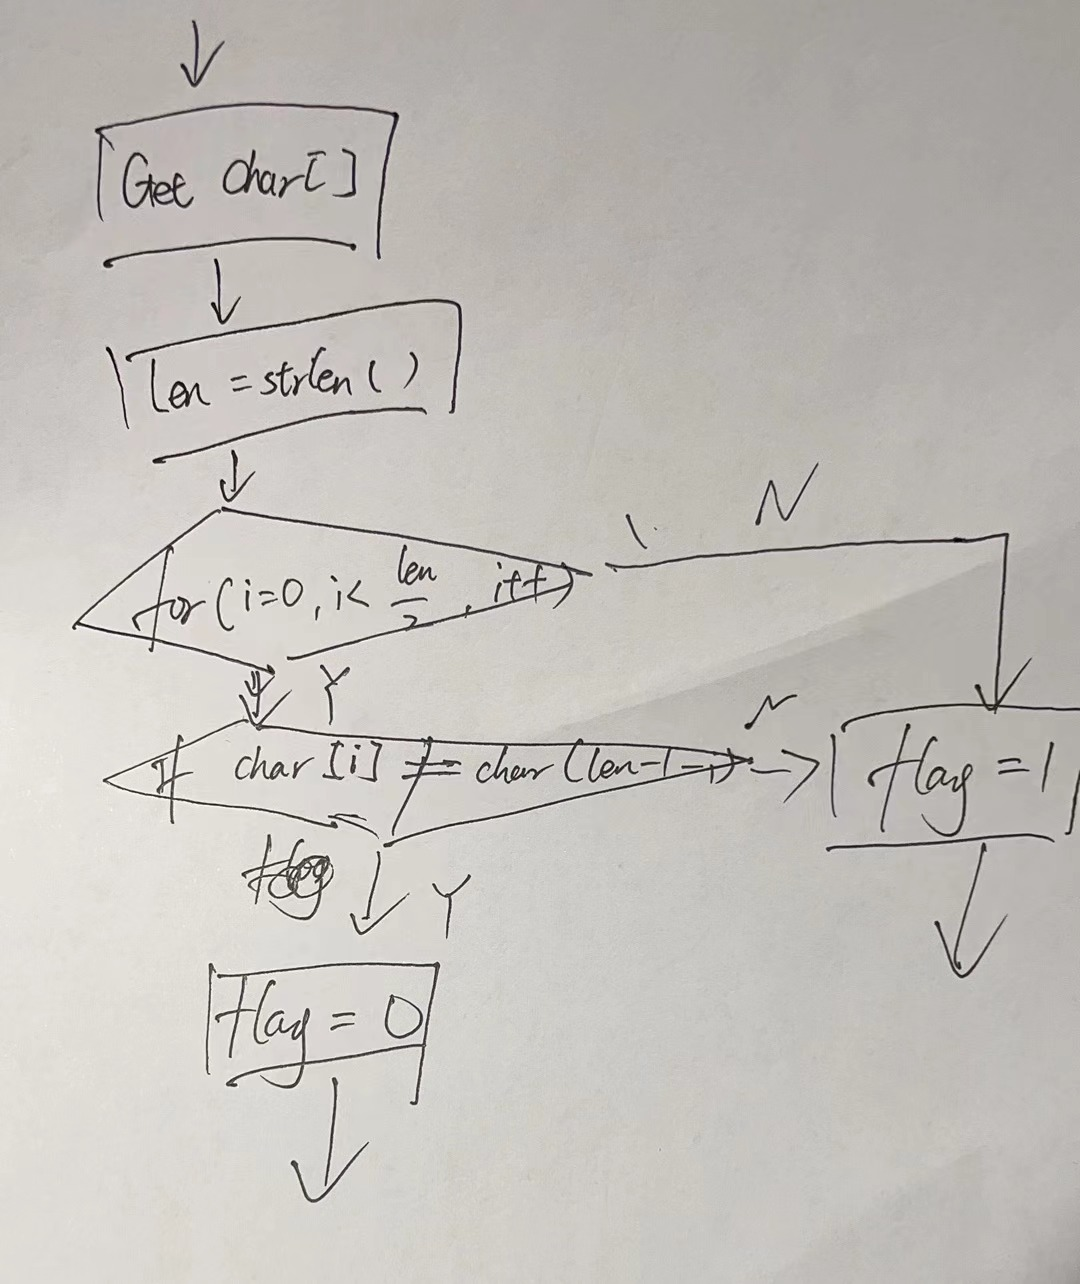 Get char[]
len = strlen()
N
for (i=0, i< len/2, i++)
Y
N
If char[i] ≠ char(len-1-i)
flag = 1
Y
flag = 0